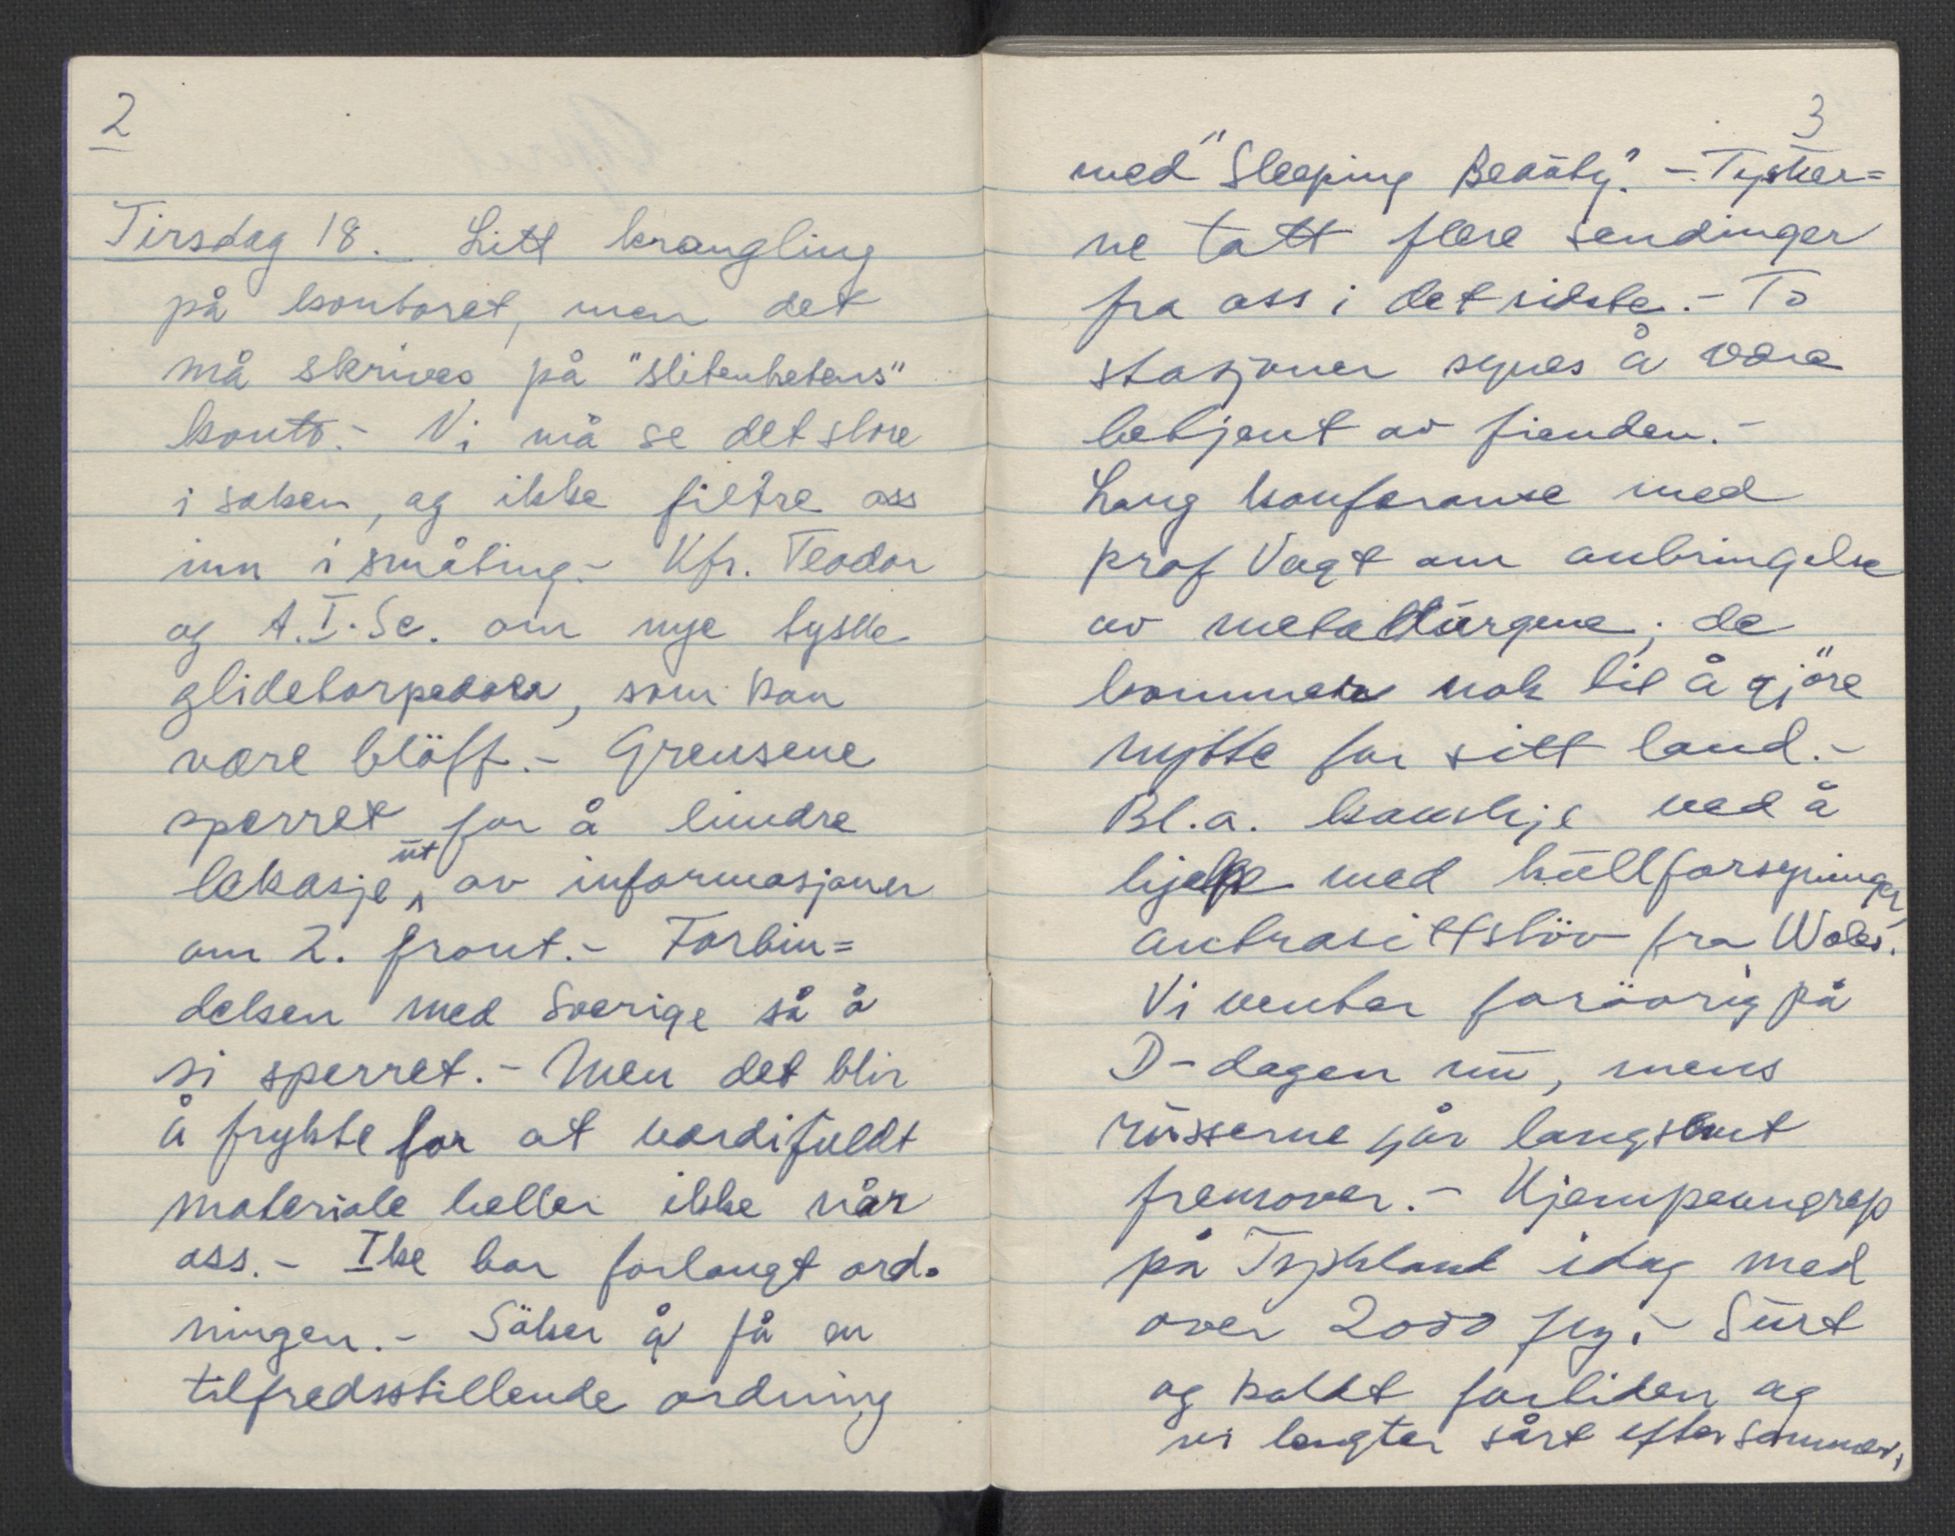 2
Tirsdag 18. Litt krangling
på kontoret, men det
må skrives på "slitenhetens"
konto.- Vi må se det store
i saken, og ikke filtre oss
inn i småting.- Kfr. Teodor
og A.I.Sc. om nye tyske
glidetorpedoer, som kan
være blöff.- Grensene
sperret for å hindre
lekasje ut av informasjoner
om 2. front.- Forbin=
delsen med Sverige så å
si sperret.- Men det blir
å frykte for at verdifuldt
materiale heller ikke når
oss.- Ike har forlangt ord-
ningen.- Söker å få en
tilfredsstillende ordning
3
med "Sleeping Beauty".- Tysker=
ne tatt flere sendinger
fra oss i det sidste.- To
stasjoner synes å være
betjent av fienden.-
Lang konferanse med
prof Vogt om anbringelse
av metallurgene; de
kommer nok til å gjöre
nytte for sitt land.-
Bl.a. kanskje ved å
hjelpe med kullforsyninger,
antrasittstöv fra Wales.
Vi venter forövrig på
D-dagen nu, mens
russerne går langsomt
fremover.- Kjempeangrep
på Tyskland idag med
over 2000 fly.- Surt
og kaldt fortiden og
vi lengter sårt efter sommer.